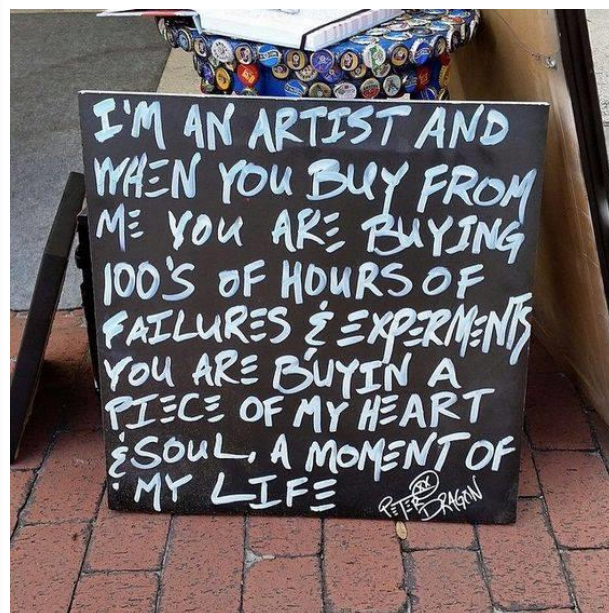 I'M AN ARTIST AND
WHEN YOU BUY FROM
ME YOU ARE BUYING
100'S OF HOURS OF
FAILURES & EXPERMENTS
YOU ARE BUYIN A
PIECE OF MY HEART
& SOUL, A MOMENT OF
MY LIFE
PETER DRAGON